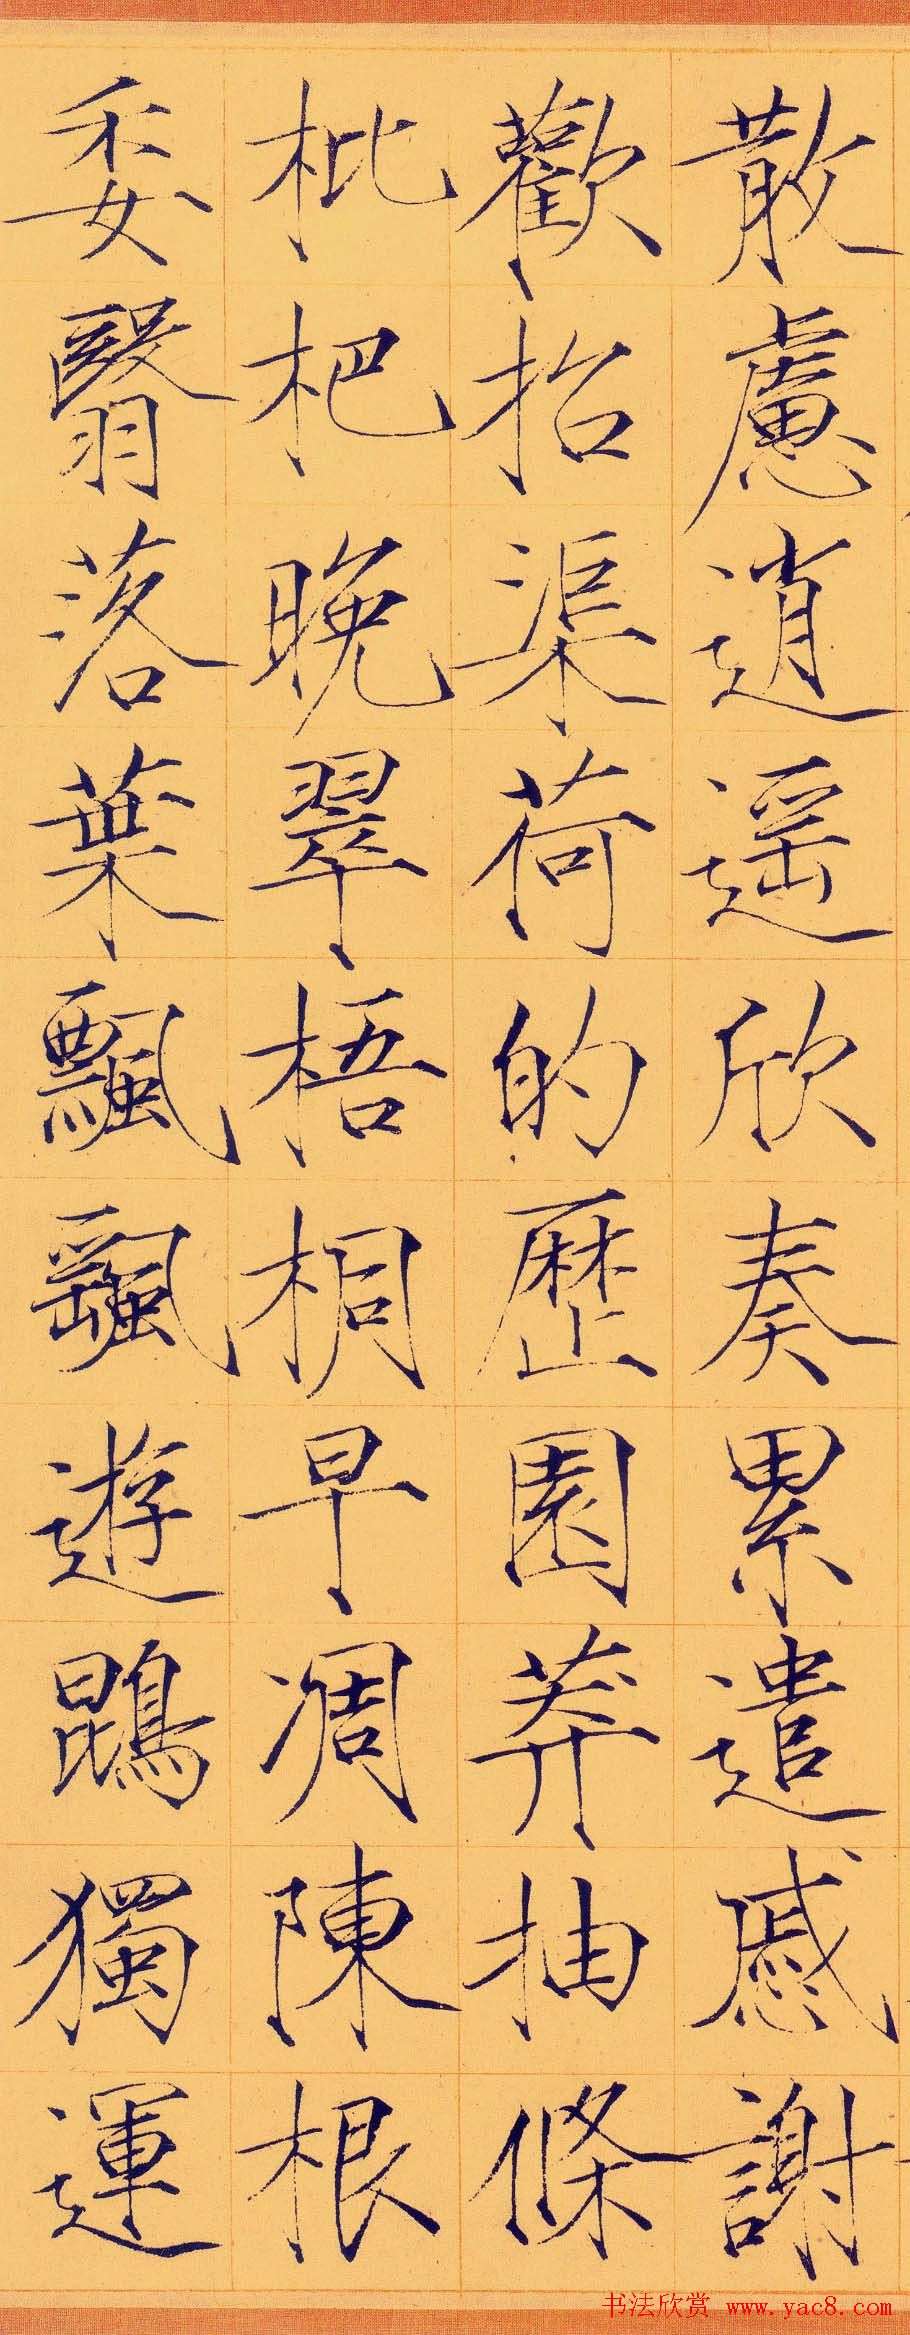 散慮逍遥欣奏累遣慼謝
歡招渠荷的歴園莽抽條
枇杷晚翠梧桐早凋陳根
委翳落葉飄颻遊鵾獨運
书法欣赏 www.yac8.com